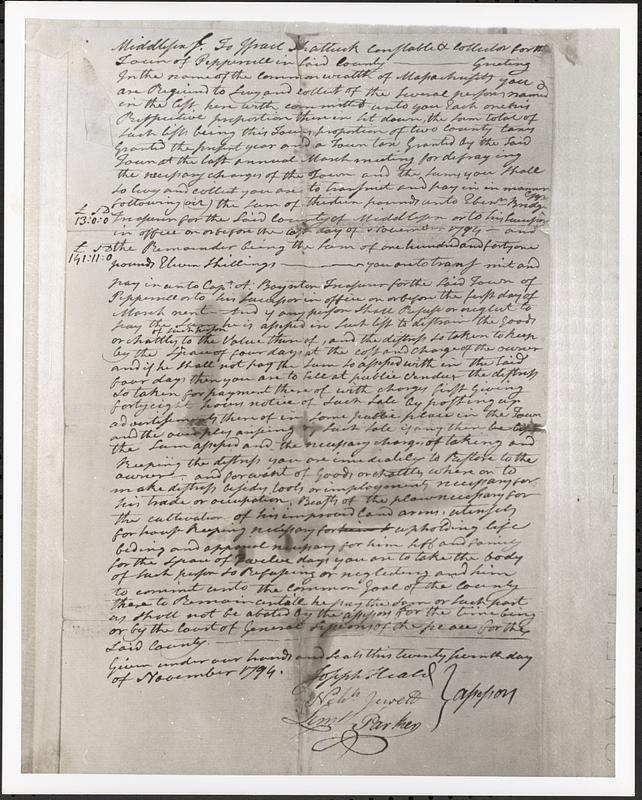 Middlesex ſs. To Israel Shattuck Constable & Collector for the
Town of Pepperell in said County ——— Greeting
In the name of the Commonwealth of Massachusetts you
are Required to Levy and collect of the several persons named
in the list here with committed unto you Each one his
Respective proportion therein set down, the sum total of
such list being this Towns proportion of two County taxes
Granted the present year and a Town tax Granted by the said
Town at the last annual March meeting for defraying
the necessary charges of the Town and the sums you shall
so levy and collect you are to transmit and pay in in manner
following viz, the sum of thirteen pounds unto Ebenr Bridge Esqr
£ S D
13:0:0
Treasurer for the said County of Middlesex or to his successor
in office on or before the last day of November 1794 — and
£ S D
141:11:0
the Remainder being the sum of one hundred and forty one
pounds Eleven Shillings ——— you are to transmit and
pay in unto Capt. A. Boynton Treasurer for the said Town of
Pepperell or to his successor in office on or before the first day of
March next — And if any person shall Refuse or neglect to
pay the sum he is assessed in such list to distrain the Goods
of such person
or chattles to the value thereof, and the distress so taken to keep
by the space of four days at the cost and charge of the owner
and if he shall not pay the sum so assessed with in the said
four days then you are to sell at public vendue the distress
so taken for payment thereof with charges first Giving
forty eight hours notice of such sale by posting up
advertisements thereof in some public place in the Town
and the overplus arising by such sale if any there be
the sum assessed and the necessary charges of taking and
Keeping the distress you are immediately to Restore to the
owner: and for want of Goods or chattles where on to
make distress besides tools or implements necessary for
his trade or occupation, Beasts of the plow necessary for
the cultivation of his improved land arms, utensils
for house Keeping necessary for upholding life
beding and apparel necessary for him self and family
for the space of twelve days you are to take the body
of such person so Refusing or neglecting and him
to commit unto the common Goal of the County
there to Remain untill he pay the same or such part
as shall not be abated by the assessors for the time being
or by the Court of General Sessions of the peace for the
said County.
Given under our hands and seals this twenty seventh day
of November 1794.
Joseph Heald
Nehh Jewett
Leml Parker
assessors